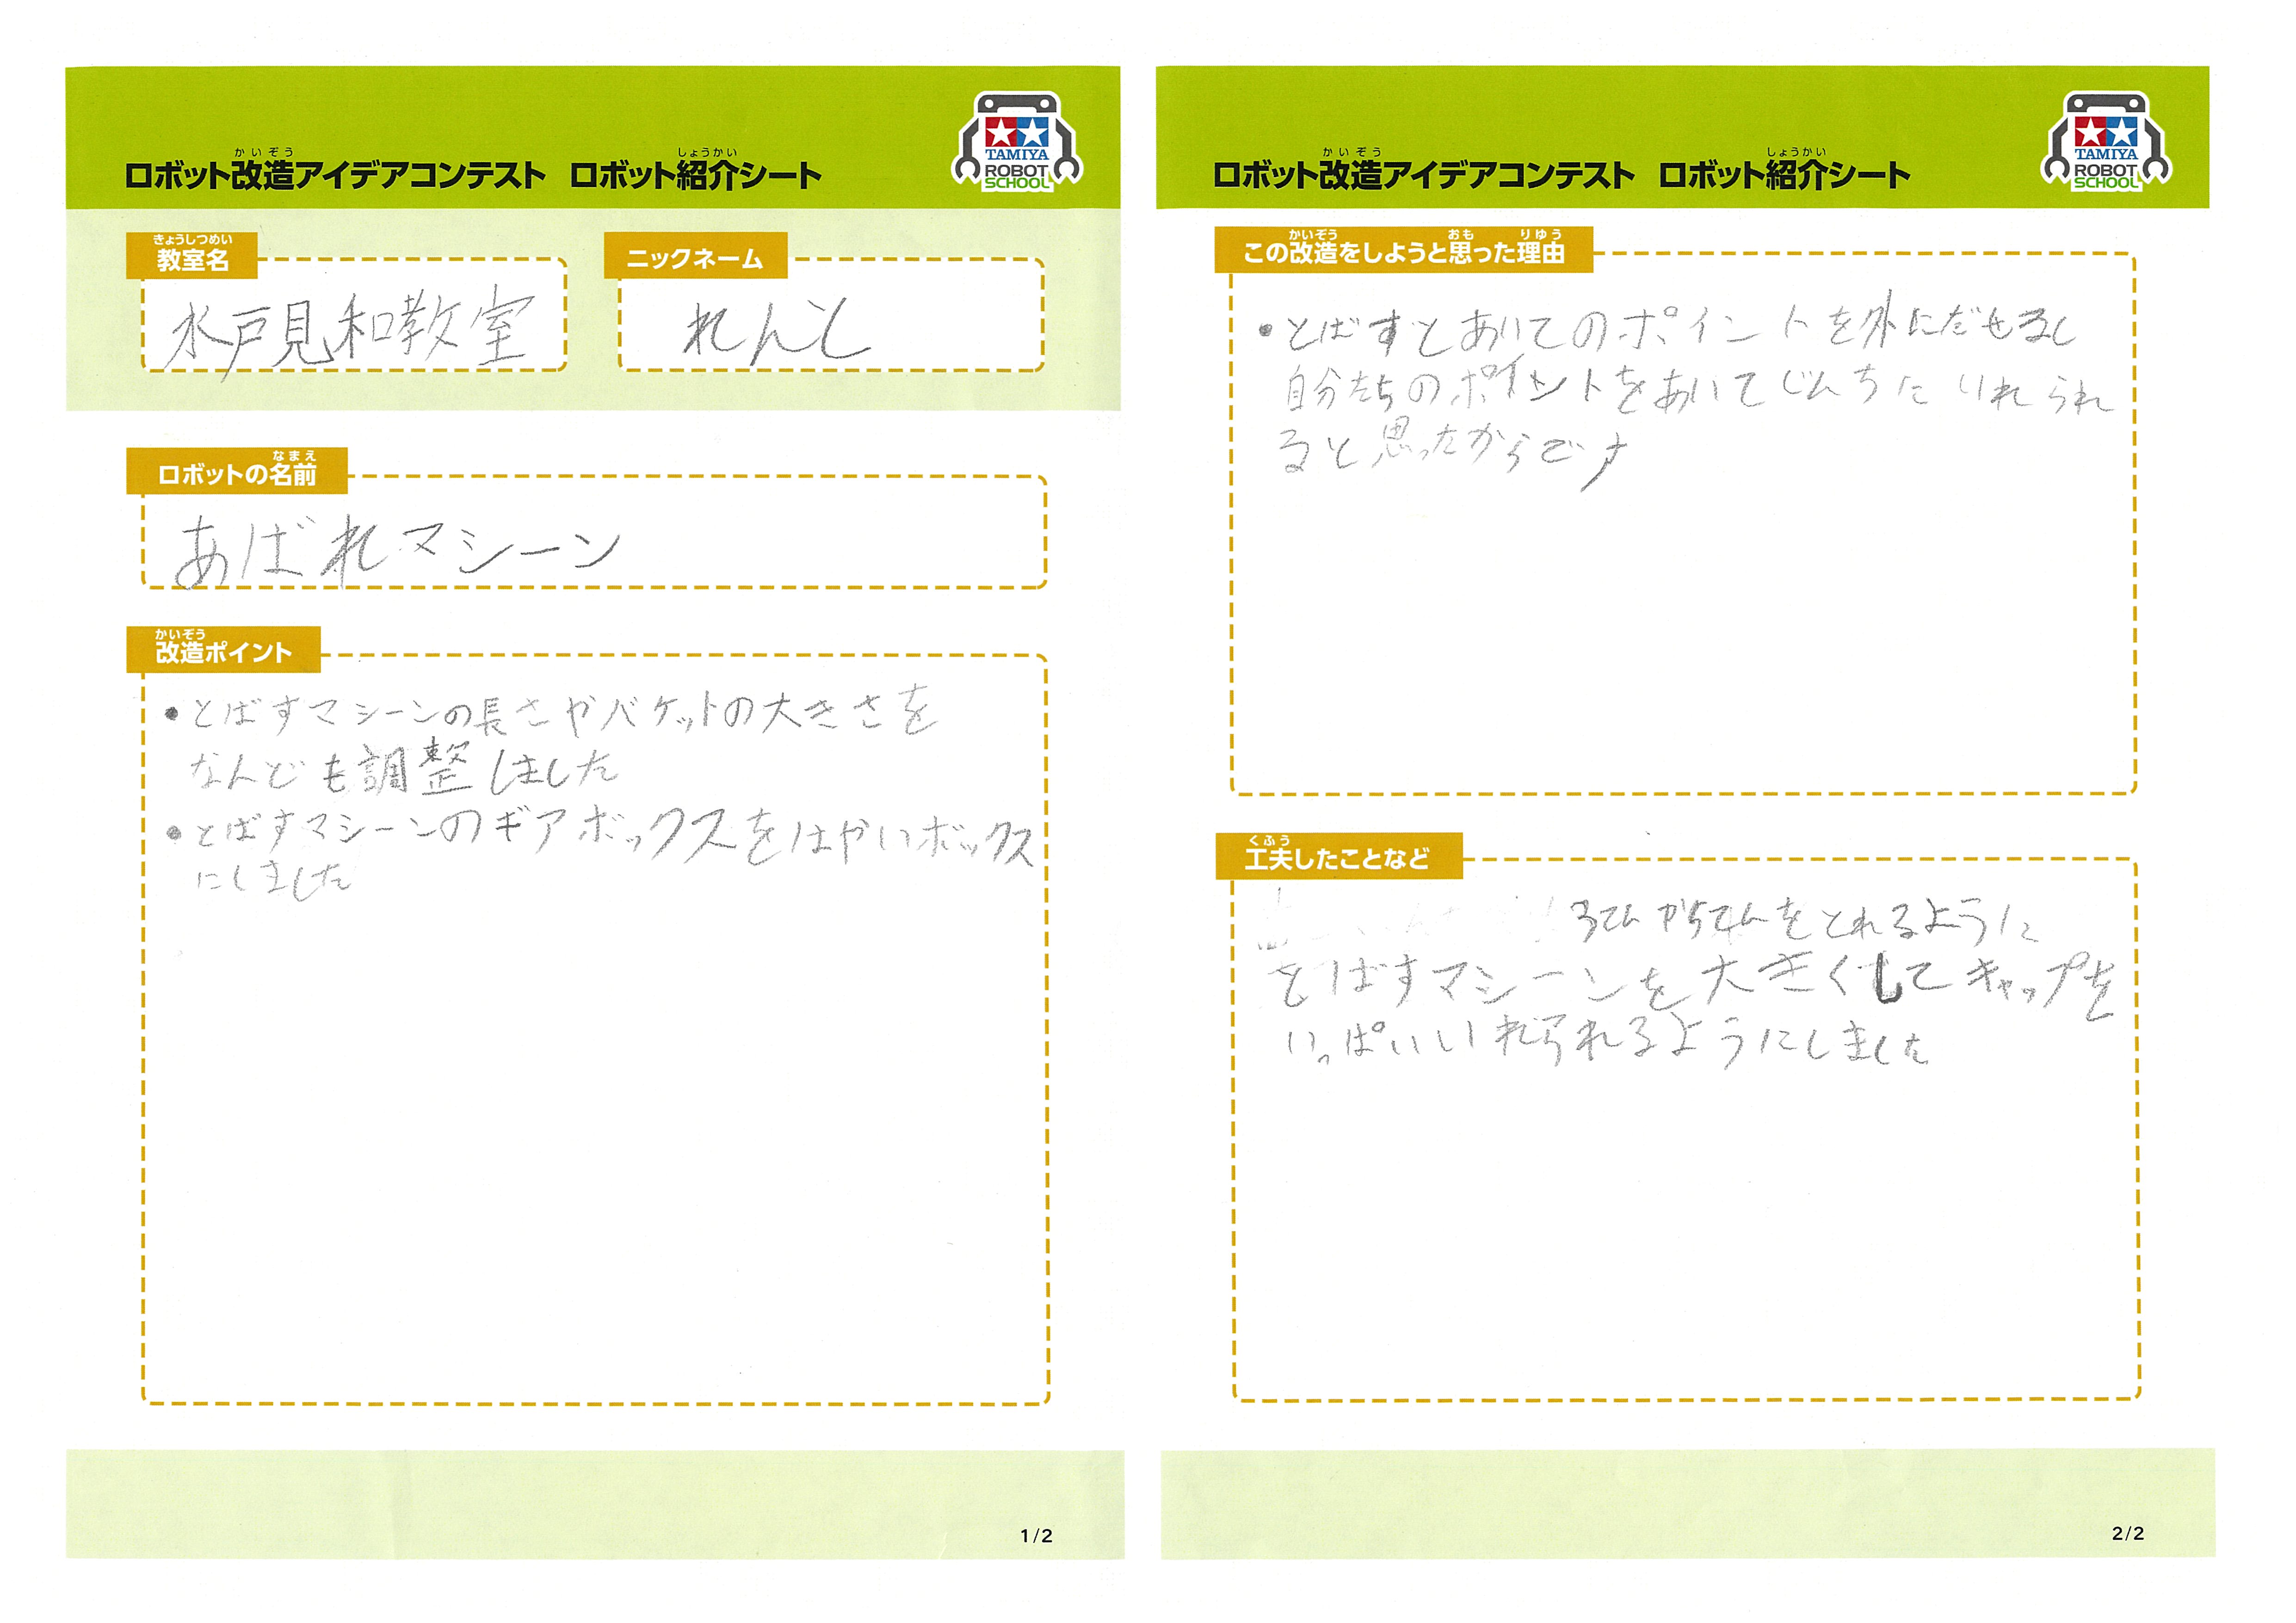 かいぞう しょうかい
ロボット改造アイデアコンテスト ロボット紹介シート
TAMIYA
ROBOT
SCHOOL
きょうしつめい
教室名
水戸見和教室
ニックネーム
れんし
なまえ
ロボットの名前
あばれマシーン
かいぞう
改造ポイント
・とばすマシーンの長さやバケットの大きさを
なんども調整しました
・とばすマシーンのギアボックスをはやいボックス
にしました
1/2
かいぞう しょうかい
ロボット改造アイデアコンテスト ロボット紹介シート
TAMIYA
ROBOT
SCHOOL
かいぞう おも りゆう
この改造をしようと思った理由
・とばすとあいてのポイントを外にだせるし
自分たちのポイントをあいてじんちにいれられ
ると思ったからです
くふう
工夫したことなど
からてんをとれるように
とばすマシーンを大きくしてキャップを
いっぱいいれられるようにしました
2/2